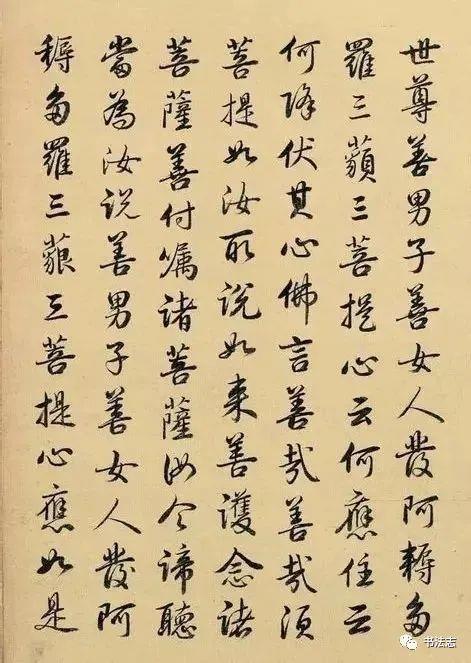 世尊善男子善女人發阿耨多
羅三藐三菩提心云何應住云
何降伏其心佛言善哉善哉須
菩提如汝所說如来善護念諸
菩薩善付嘱諸菩薩汝今諦聽
當為汝説善男子善女人發阿
耨多羅三藐三菩提心應如是
书法志